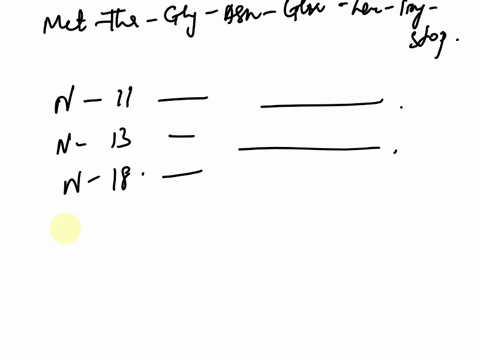 Met - Thr - Gly - Asn - Gln - Leu - Try -
stop.
N - 11 — — .
N - 13 — — .
N - 18 . —